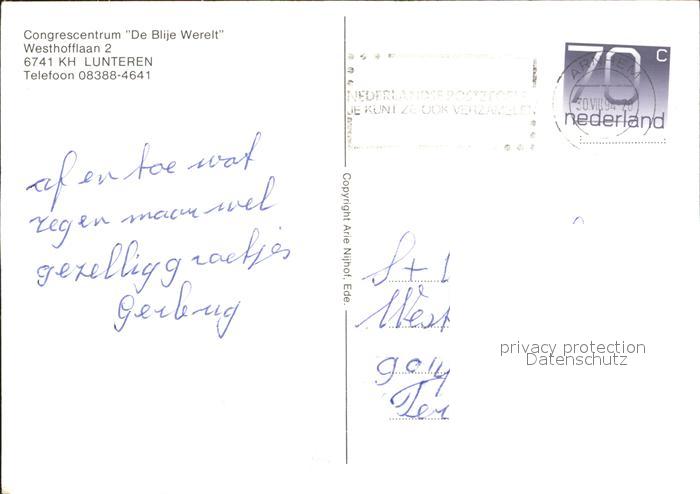 Congrescentrum "De Blije Werelt"
Westhofflaan 2
6741 KH LUNTEREN
Telefoon 08388-4641
70 c
nederland
ARNHEM
30.VIII.94
NEDERLANDSE POSTZEGELS
JE KUNT ZE OOK VERZAMELEN
af en toe wat
regen maar wel
gezellig groetjes
Gerbrug
Copyright Arie Nijhof, Ede.
S + 
West
Ter
privacy protection
Datenschutz